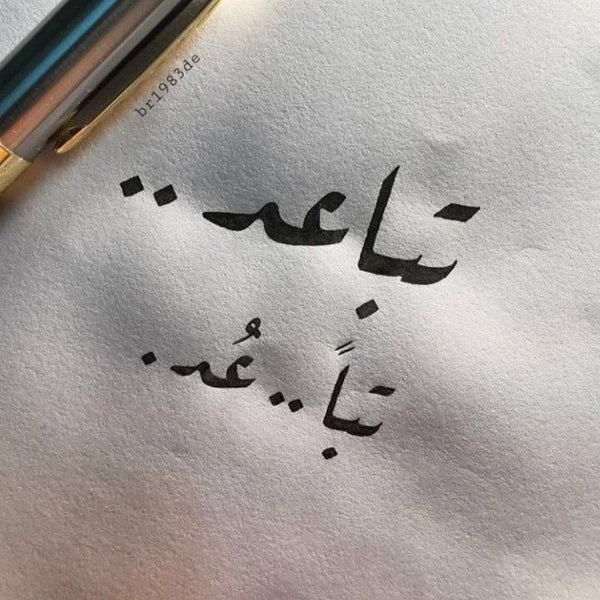 br1983de
تباعد..
تباً.. عُد.